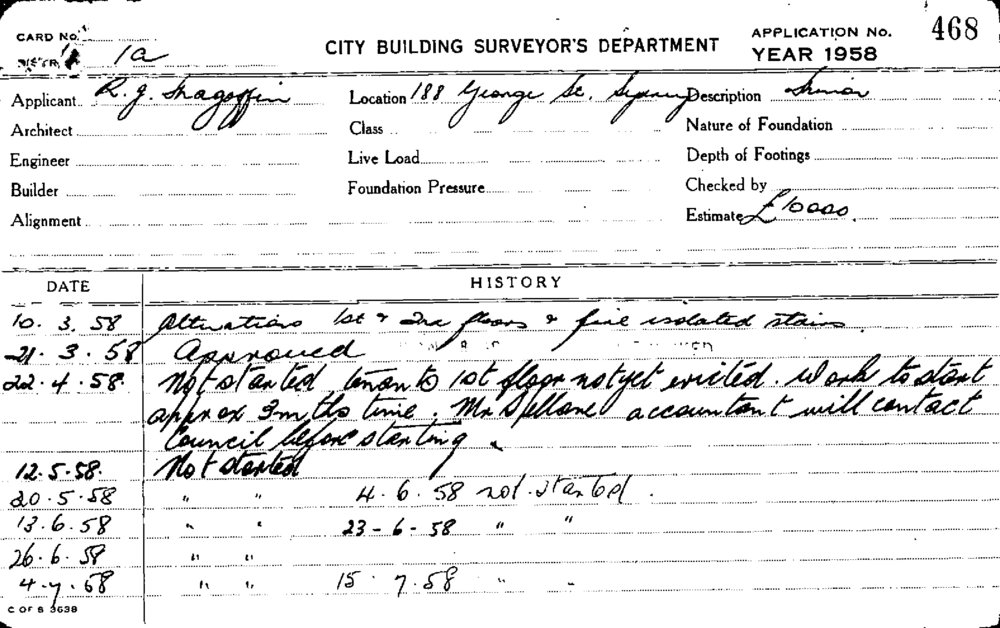 CARD No.
468
DISTR. 1a
CITY BUILDING SURVEYOR'S DEPARTMENT
APPLICATION No.
YEAR 1958
Applicant R. J. Location 188 George St. Sydney Description
Architect Class Nature of Foundation
Engineer Live Load Depth of Footings
Builder Foundation Pressure Checked by
Alignment Estimate £10000.
DATE HISTORY
10. 3. 58 Alterations 1st & 2nd floors & fire isolated stairs.
21. 3. 58 Approved
22. 4. 58. Not started tenants 1st floor not yet evicted. Work to start
approx 3 mths time. Mr Spillane accountant will contact
Council before starting.
12. 5. 58. Not started
20. 5. 58 " " 4. 6. 58 not started.
13. 6. 58 " " 23 - 6 - 58 " "
26. 6. 58 " "
4. 7. 58 " " 15. 7. 58 " "
C OF S 3638